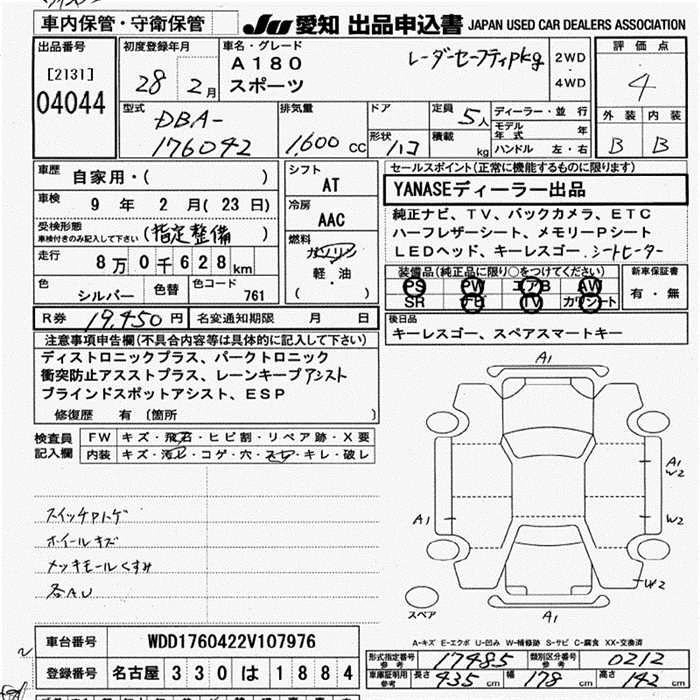 車内保管・守衛保管
JU 愛知 出品申込書 JAPAN USED CAR DEALERS ASSOCIATION
出品番号
[2131]
04044
初度登録年月
28年 2月
車名・グレード
A180
スポーツ
レーダーセーフティpkg
2WD
・
4WD
評価点
4
外装 内装
B B
型式
DBA-
176042
排気量
1,600 CC
ドア
形状 ハコ
定員 5人
積載 kg
ディーラー・並行
モデル年式 年
ハンドル 左・右
車歴
自家用・( )
車検 9年 2月(23日)
受検形態
車検付きのみ記入して下さい (指定整備)
走行 8万0千628km
色 シルバー 色替 色コード 761
シフト
AT
冷房
AAC
燃料
ガソリン
軽・油
( )
セールスポイント(正常に機能するものに限ります)
YANASEディーラー出品
純正ナビ、TV、バックカメラ、ETC
ハーフレザーシート、メモリーPシート
LEDヘッド、キーレスゴー、シートヒーター
装備品(純正品に限り○をつけてください)
PS PW エアB AW
SR ナビ TV カワシート
新車保証書
有・無
R券 19,450円 名変通知期限 月 日
後日品
キーレスゴー、スペアスマートキー
注意事項申告欄(不具合内容等は具体的に記入して下さい)
ディストロニックプラス、パークトロニック
衝突防止アスストプラス、レーンキープアシスト
ブラインドスポットアシスト、ESP
修復歴 有 (箇所 )
検査員
記入欄
FW キズ・飛石・ヒビ割・リペア跡・X要
内装 キズ・汚レ・コゲ・穴・スレ・キレ・破レ
スイッチPトゲ
ホイールキズ
メッキモールくすみ
各AU
A1
A1
W2
A1
W2
W2
A1
スペア
A-キズ E-エクボ U-凹み W-補修跡 S-サビ C-腐食 XX-交換済
車台番号 WDD1760422V107976
登録番号 名古屋 330 は 1884
形式指定番号 参考 17485 類別区分番号 参考 0212
車庫証明用 参考 長さ 435cm 幅 178cm 高さ 142cm